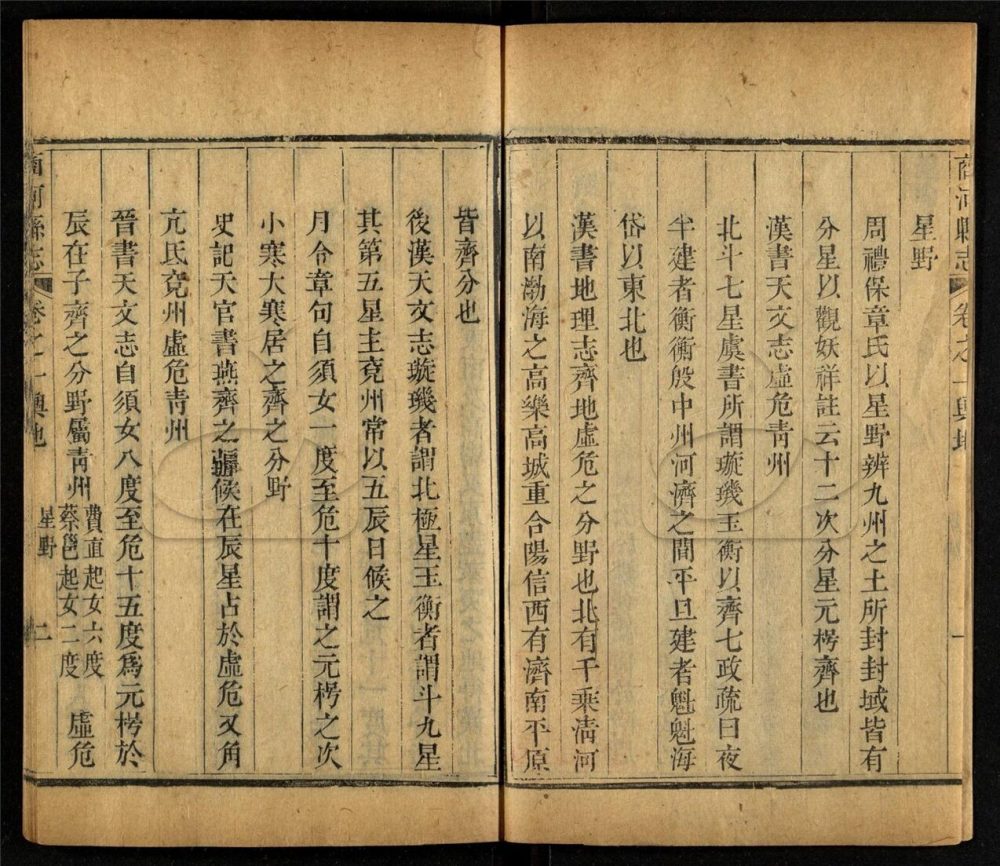 商河縣志 卷之一 輿地 一
星野
周禮保章氏以星野辨九州之土所封封域皆有
分星以觀妖祥註云十二次分星元枵齊也
漢書天文志虛危青州
北斗七星虞書所謂璇璣玉衡以齊七政疏曰夜
半建者衡衡殷中州河濟之間平旦建者魁魁海
岱以東北也
漢書地理志齊地虛危之分野也北有千乘淸河
以南渤海之高樂高城重合陽信西有濟南平原
皆齊分也
後漢天文志璇璣者謂北極星玉衡者謂斗九星
其第五星主兗州常以五辰日候之
月令章句自須女一度至危十度謂之元枵之次
小寒大寒居之齊之分野
史記天官書燕齊之疆候在辰星占於虛危又角
亢氐兗州虛危靑州
晉書天文志自須女八度至危十五度爲元枵於
辰在子齊之分野屬靑州 費直起女六度 蔡邕起女二度 虛危
商河縣志 卷之一 輿地 星野 二